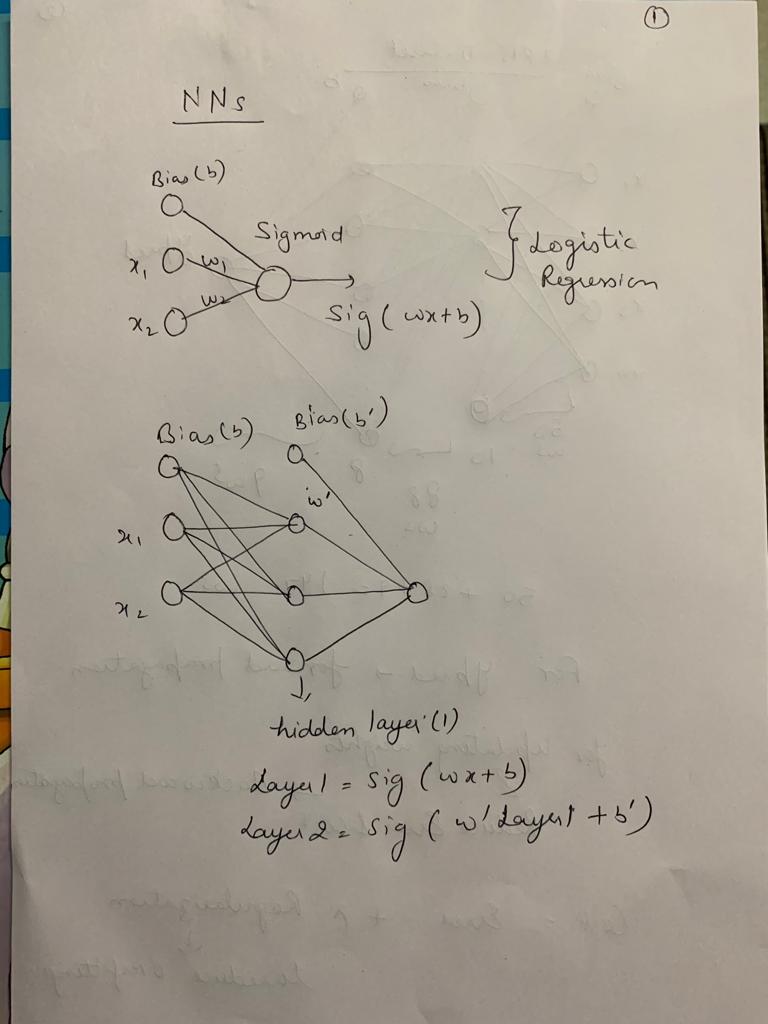 1
NNs
Bias (b)
Sigmoid
x₁ w₁
w₂
x₂
Sig ( wx+b)
} Logistic
Regression
Bias (b) Bias (b')
w'
x₁
x₂
hidden layer (1)
Layer 1 = Sig (wx+b)
Layer 2 = Sig ( w' Layer 1 + b')